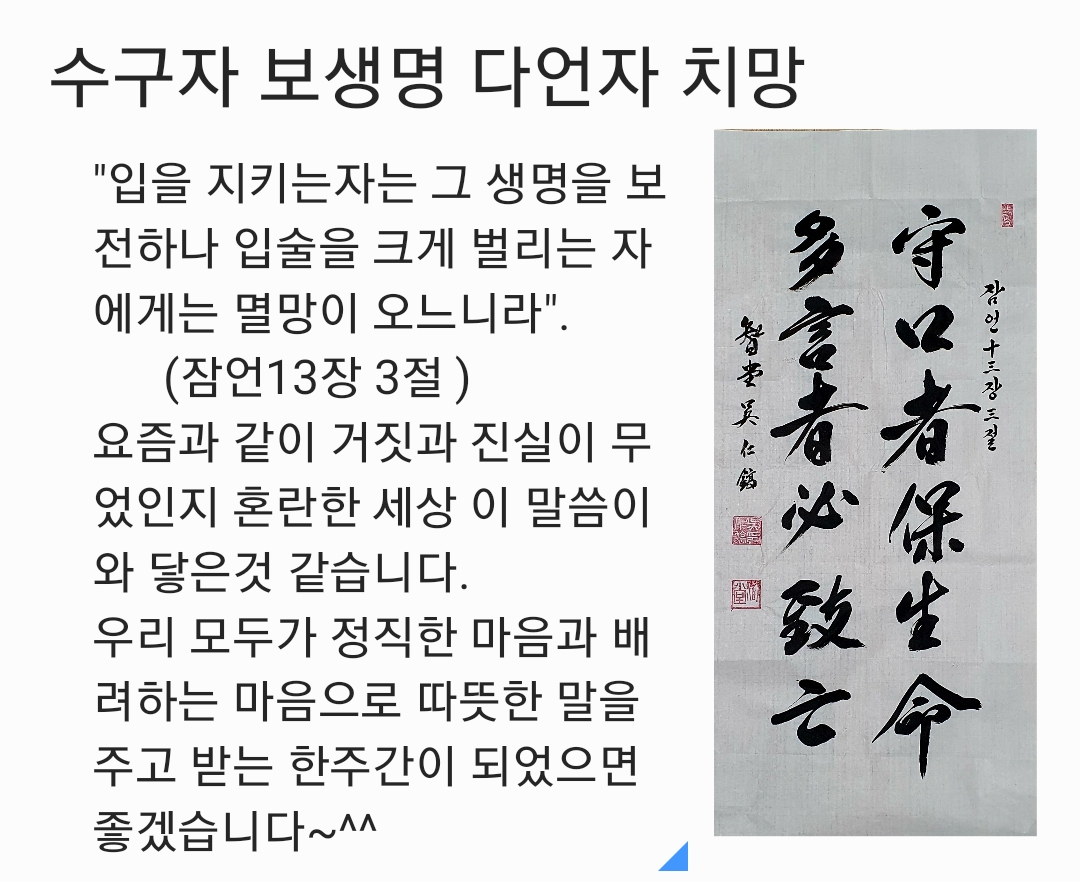 수구자 보생명 다언자 치망
"입을 지키는자는 그 생명을 보
전하나 입술을 크게 벌리는 자
에게는 멸망이 오느니라".
(잠언13장 3절 )
요즘과 같이 거짓과 진실이 무
었인지 혼란한 세상 이 말씀이
와 닿은것 같습니다.
우리 모두가 정직한 마음과 배
려하는 마음으로 따뜻한 말을
주고 받는 한주간이 되었으면
좋겠습니다~^^
잠언十三장三절
守口者保生命
多言者必致亡
智堂吳仁鎬